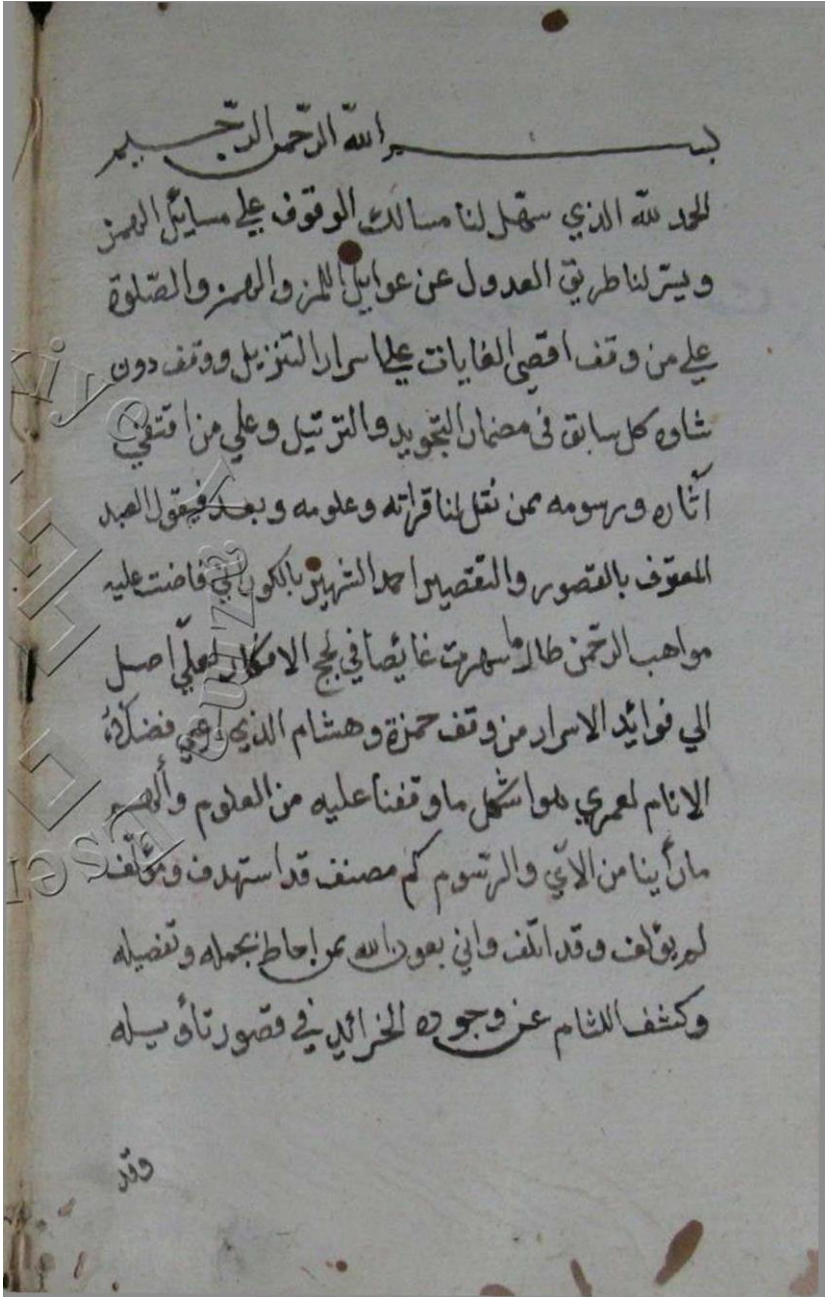 بسم الله الرّحمن الرّحيم
الحمد للّه الذي سهّل لنا مسالك الوقوف علي مسائل الهمز
ويسّر لنا طريق العدول عن عوايل اللمز والهمز والصّلوة
علي من وقف اقصى الغايات علي اسرار التنزيل ووقف دون
شاوه كل سابق في مضمار التجويد والترتيل وعلي من اقتفي
آثاره ورسومه ممن نقل لنا قراته وعلومه وبعد فيقول العبد
المعترف بالقصور والتقصير احمد الشهير بالكوراني فاضت عليه
مواهب الرحّمن طالما سهرت غائصا في لجج الافكار لعلّي اصل
الي فوائد الاسرار من وقف حمزة وهشام الذي
الانام لعمري هو اشكل ما وقفنا عليه من العلوم وألهم
ما رأينا من الآي والرسّوم كم مصنف قد استهدف ومؤلّف
لم يؤلف وقد اتلف واني بعون الله ممن احاط بجمله وتفصيله
وكشف اللثام عن وجوه الخرائد في قصور تأويله
وقد